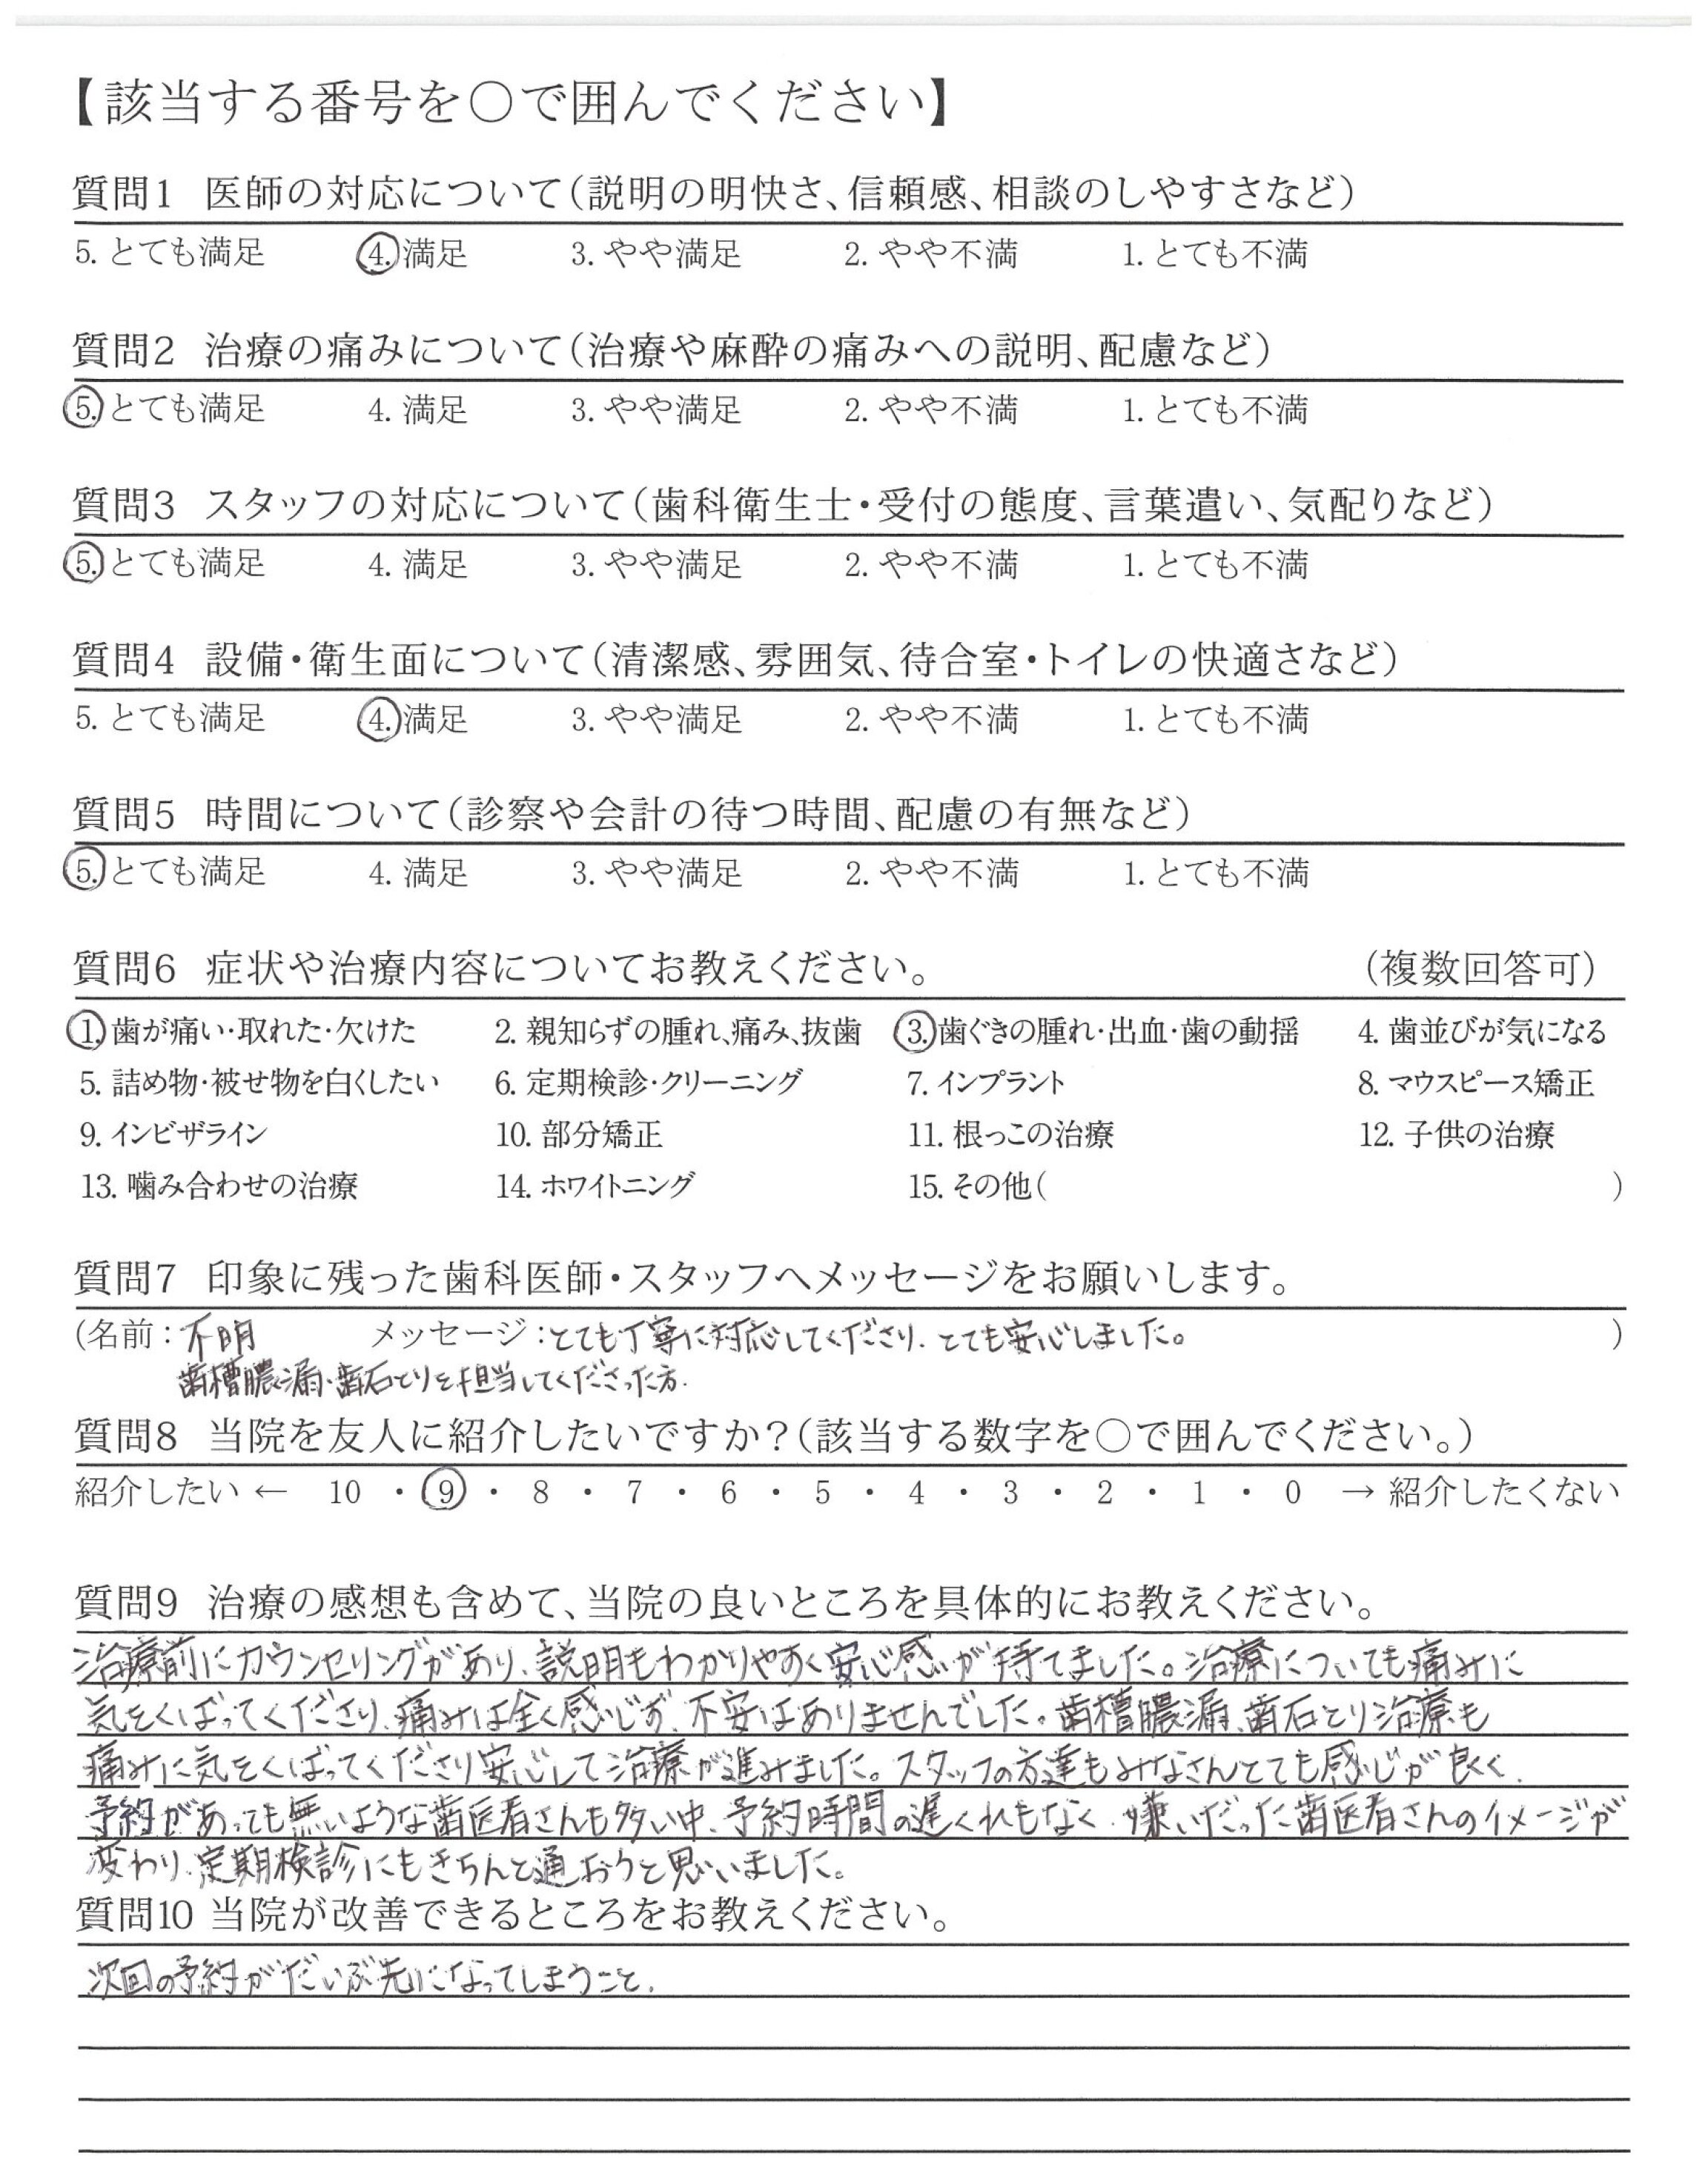 【該当する番号を○で囲んでください】
質問1 医師の対応について(説明の明快さ、信頼感、相談のしやすさなど)
5. とても満足 4. 満足 3. やや満足 2. やや不満 1. とても不満
質問2 治療の痛みについて(治療や麻酔の痛みへの説明、配慮など)
5. とても満足 4. 満足 3. やや満足 2. やや不満 1. とても不満
質問3 スタッフの対応について(歯科衛生士・受付の態度、言葉遣い、気配りなど)
5. とても満足 4. 満足 3. やや満足 2. やや不満 1. とても不満
質問4 設備・衛生面について(清潔感、雰囲気、待合室・トイレの快適さなど)
5. とても満足 4. 満足 3. やや満足 2. やや不満 1. とても不満
質問5 時間について(診察や会計の待つ時間、配慮の有無など)
5. とても満足 4. 満足 3. やや満足 2. やや不満 1. とても不満
質問6 症状や治療内容についてお教えください。 (複数回答可)
1. 歯が痛い・取れた・欠けた 2. 親知らずの腫れ、痛み、抜歯 3. 歯ぐきの腫れ・出血・歯の動揺 4. 歯並びが気になる
5. 詰め物・被せ物を白くしたい 6. 定期検診・クリーニング 7. インプラント 8. マウスピース矯正
9. インビザライン 10. 部分矯正 11. 根っこの治療 12. 子供の治療
13. 噛み合わせの治療 14. ホワイトニング 15. その他( )
質問7 印象に残った歯科医師・スタッフへメッセージをお願いします。
(名前:不明 メッセージ:とても丁寧に対応してくださり、とても安心しました。 )
歯槽膿漏、歯石とりを担当してくださった方.
質問8 当院を友人に紹介したいですか?(該当する数字を○で囲んでください。)
紹介したい ← 10 ・ 9 ・ 8 ・ 7 ・ 6 ・ 5 ・ 4 ・ 3 ・ 2 ・ 1 ・ 0 → 紹介したくない
質問9 治療の感想も含めて、当院の良いところを具体的にお教えください。
治療前にカウンセリングがあり、説明もわかりやすく安心感が持てました。治療についても痛みに
気をくばってくださり、痛みは全く感じず、不安はありませんでした。歯槽膿漏、歯石とり治療も
痛みに気をくばってくださり安心して治療が進みました。スタッフの方達もみなさんとても感じが良く、
予約があっても無いような歯医者さんも多い中、予約時間の遅くれもなく、嫌いだった歯医者さんのイメージが
変わり、定期検診にもきちんと通おうと思いました。
質問10 当院が改善できるところをお教えください。
次回の予約がだいぶ先になってしまうこと.